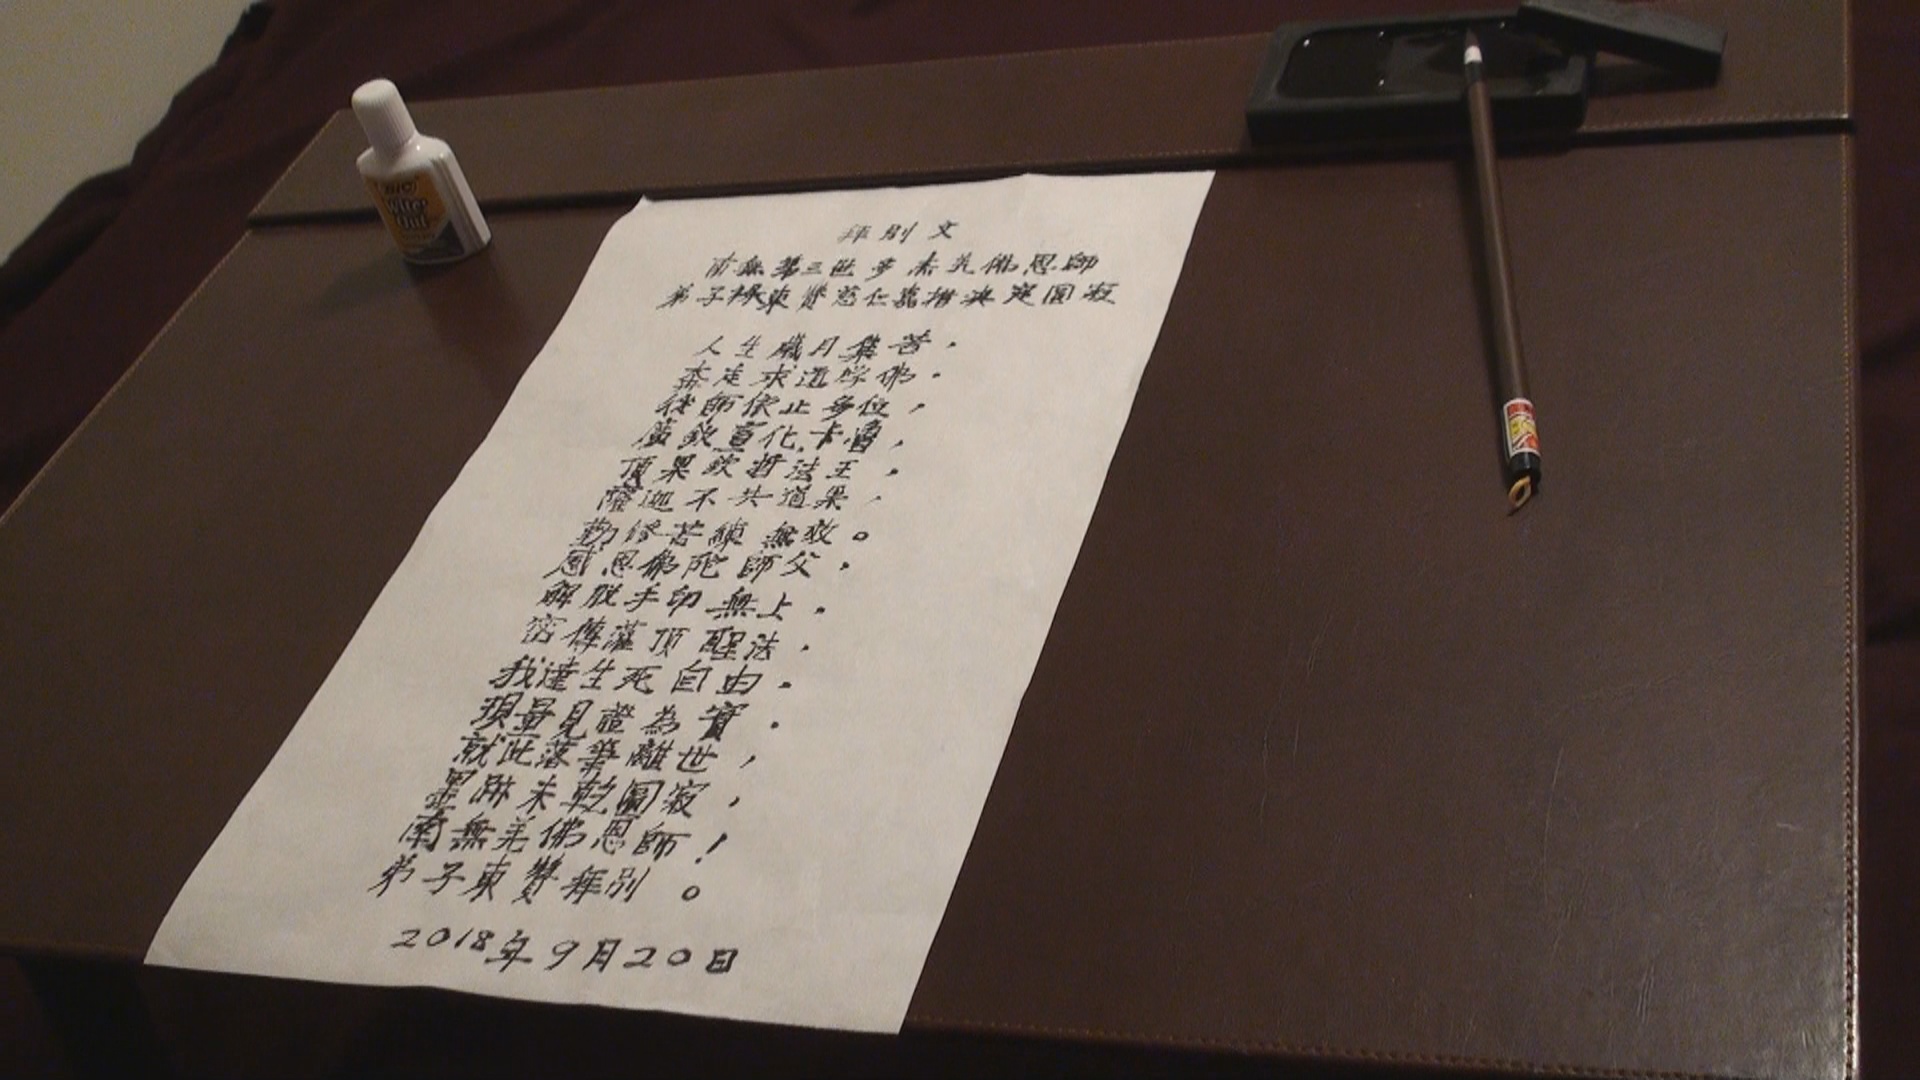 BIC
Wite-Out
拜別文
南無第三世多杰羌佛恩師
弟子祿東贊慈仁嘉措決定圓寂
人生歲月集苦，
奔走求道學佛。
從師依止多位，
廣欽宣化卡魯，
頂果欽哲法王，
薩迦不共道果，
勤修苦練無效。
感恩佛陀師父，
解脫手印無上。
密傳灌頂聖法，
我達生死自由。
現量見證為實。
就此落筆離世，
墨跡未乾圓寂，
南無羌佛恩師！
弟子東贊拜別。
2018年9月20日